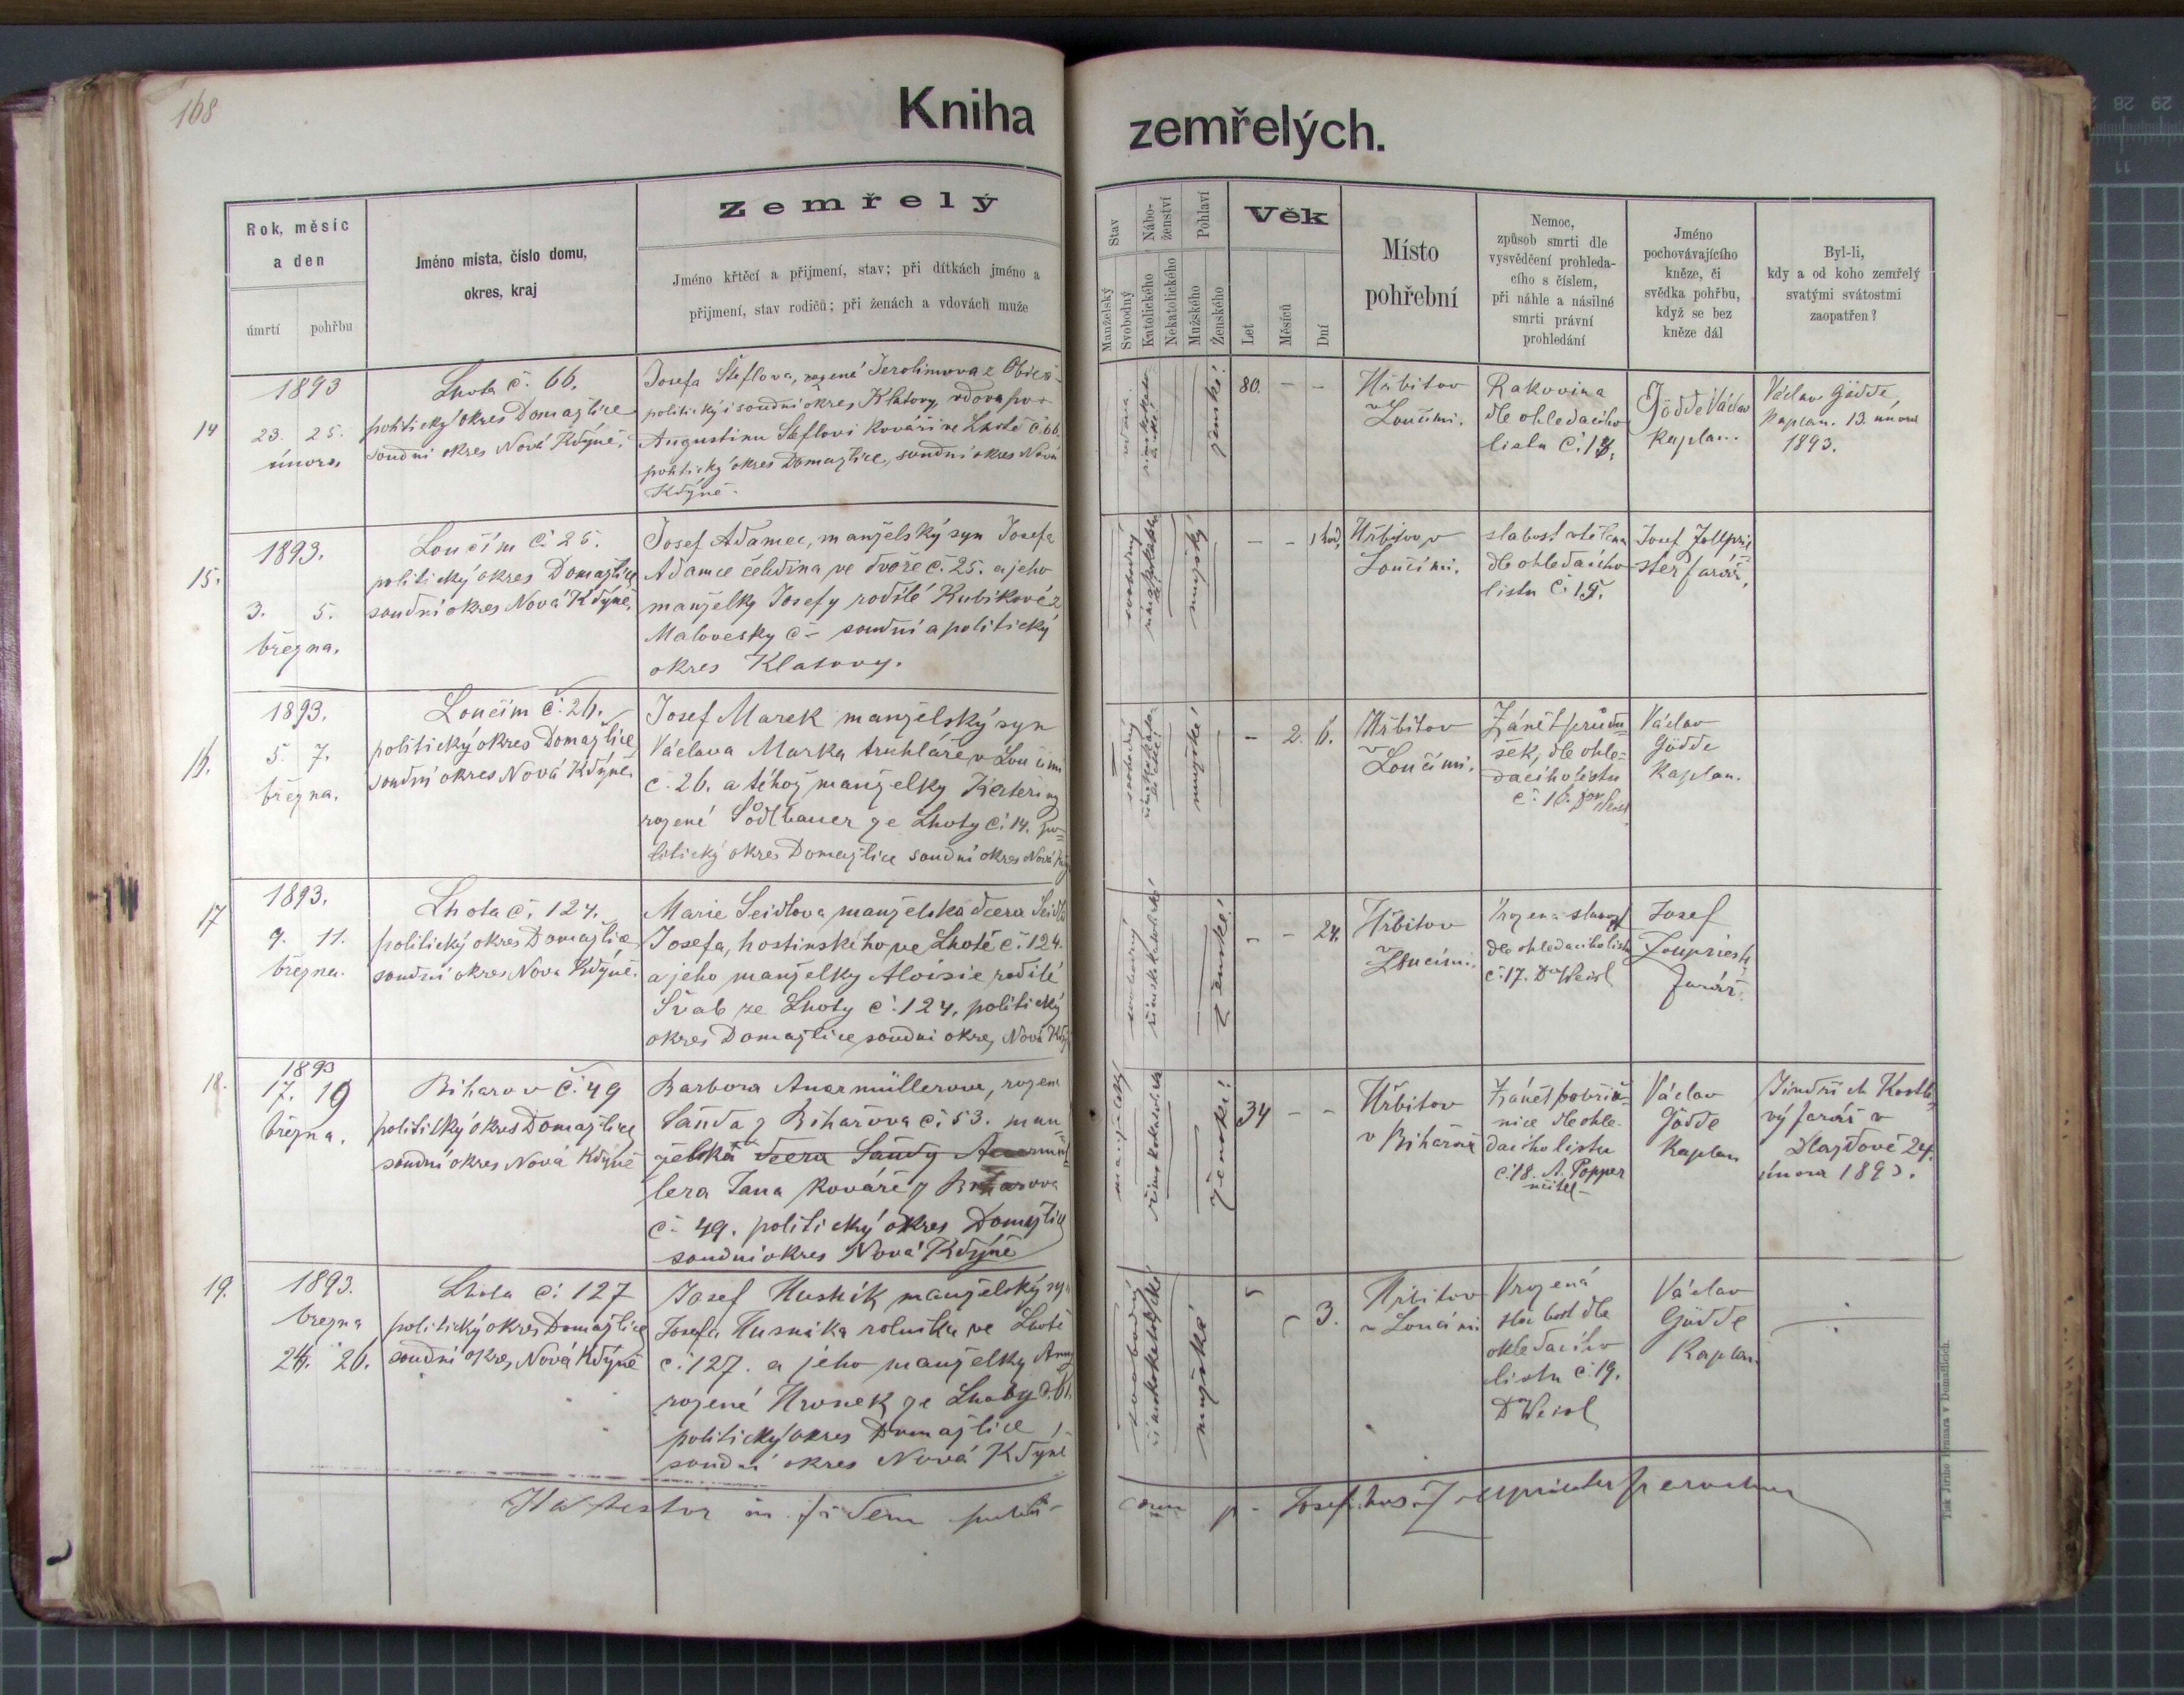 168
Kniha zemřelých.
Rok, měsíc a den
úmrtí
pohřbu
Jméno místa, číslo domu,
okres, kraj
Zemřelý
Jméno křtěcí a přijmení, stav; při dítkách jméno a
přijmení, stav rodičů; při ženách a vdovách muže
Stav
Manželský
Svobodný
Náboženství
Katolického
Nekatolického
Pohlaví
Mužského
Ženského
Věk
Let
Měsíců
Dní
Místo
pohřební
Nemoc,
způsob smrti dle
vysvědčení prohleda-
cího s číslem,
při náhle a násilné
smrti právní
prohledání
Jméno
pochovávajícího
kněze, či
svědka pohřbu,
když se bez
kněze dál
Byl-li,
kdy a od koho zemřelý
svatými svátostmi
zaopatřen?
14
1893
23. 25.
února
Lhota č. 66,
politický okres Domažlice
soudní okres Nová Kdýně,
Josefa Šteflova, rozené Jerolimova z
politický i soudní okres Klatovy, vdova po
Augustinu Šteflovi kováři ve Lhotě č 66.
politický okres Domažlice, soudní okres Nová
Kdýně.
ženské
80. - -
Hřbitov
v Loučimi.
Rakovina
dle ohledacího
listu č. 18,
Gödde Václav
kaplan.
Václav Gödde,
kaplan. 13. února
1893.
15.
1893.
3. 5.
března,
Loučim č 25.
politický okres Domažlice
soudní okres Nová Kdýně,
Josef Adamec, manželský syn Josefa
Adamce čeledína ve dvoře č. 25. a jeho
manželky Josefy rodilé Kubikové z
Malovesky č - soudní a politický
okres Klatovy.
svobodný
mužský
- - 1 hod,
Hřbitov v
Loučimi.
slabost
dle ohledacího
listu č. 15.
Josef
farář,
16.
1893.
5. 7.
března.
Loučim č. 26.
politický okres Domažlice
soudní okres Nová Kdýně
Josef Marek manželský syn
Václava Marka truhláře v Loučimi
č. 26. a téhož manželky Kateřiny
rozené Södlbauer ze Lhoty č. 14. po=
litický okres Domažlice soudní okres Nová
svobodný
mužské
- 2. 6.
Hřbitov
v Loučimi.
Zánět průdu=
šek, dle ohle=
dacího listu
č. 16.
Václav
Gödde
kaplan.
17
1893.
9. 11.
března.
Lhota č. 124.
politický okres Domažlice
soudní okres Nova Kdýně.
Marie Seidlova manželská dcera Seidla
Josefa, hostinského ve Lhotě č. 124.
a jeho manželky Aloisie rodilé
Šváb ze Lhoty č. 124, politický
okres Domažlice soudní okres Nová Kdý
svobodný
římskokatolické
ženské
- - 24.
Hřbitov
Vrozená slabost
dle ohledacího listu
č. 17. Dr Weisl
Josef
farář.
18.
1893
17. 19
března.
Biharov č. 49
politický okres Domažlice
soudní okres Nová Kdýně
Barbora Auermüllerova, rozená
Sanda z Biharova č. 53. man=
želka dcera Sandy Auermül
lera Jana kováře z Biharova
č. 49. politický okres Domažlice
soudní okres Nová Kdýně
manželský
římskokatolická
ženské
34 - -
Hřbitov
v Biharově
Zánět pobřiš=
nice dle ohle-
dacího listu
č. 18. A. Popper
Václav
Gödde
kaplan
Jindřich
farář v
Dlažďově 24.
února 1893.
19.
1893.
března
24. 26.
Lhota č. 127
politický okres Domažlice
soudní okres, Nová Kdýně
Josef Husník manželský syn
Josefa Husníka rolníka ve Lhotě
č. 127. a jeho manželky Anny
rozené Hronek ze Lhoty
politický okres Domažlice,
soudní okres Nová Kdýně
svobodný
římskokatolické
mužské
- - 3.
Hřbitov
v Loučimi
Vrozená
slabost dle
ohledacího
listu č. 19.
Dr Weisl
Václav
Gödde
Kaplan
Ita testor in fidem
Tisk Jiřího Prunara v Domažlicích.